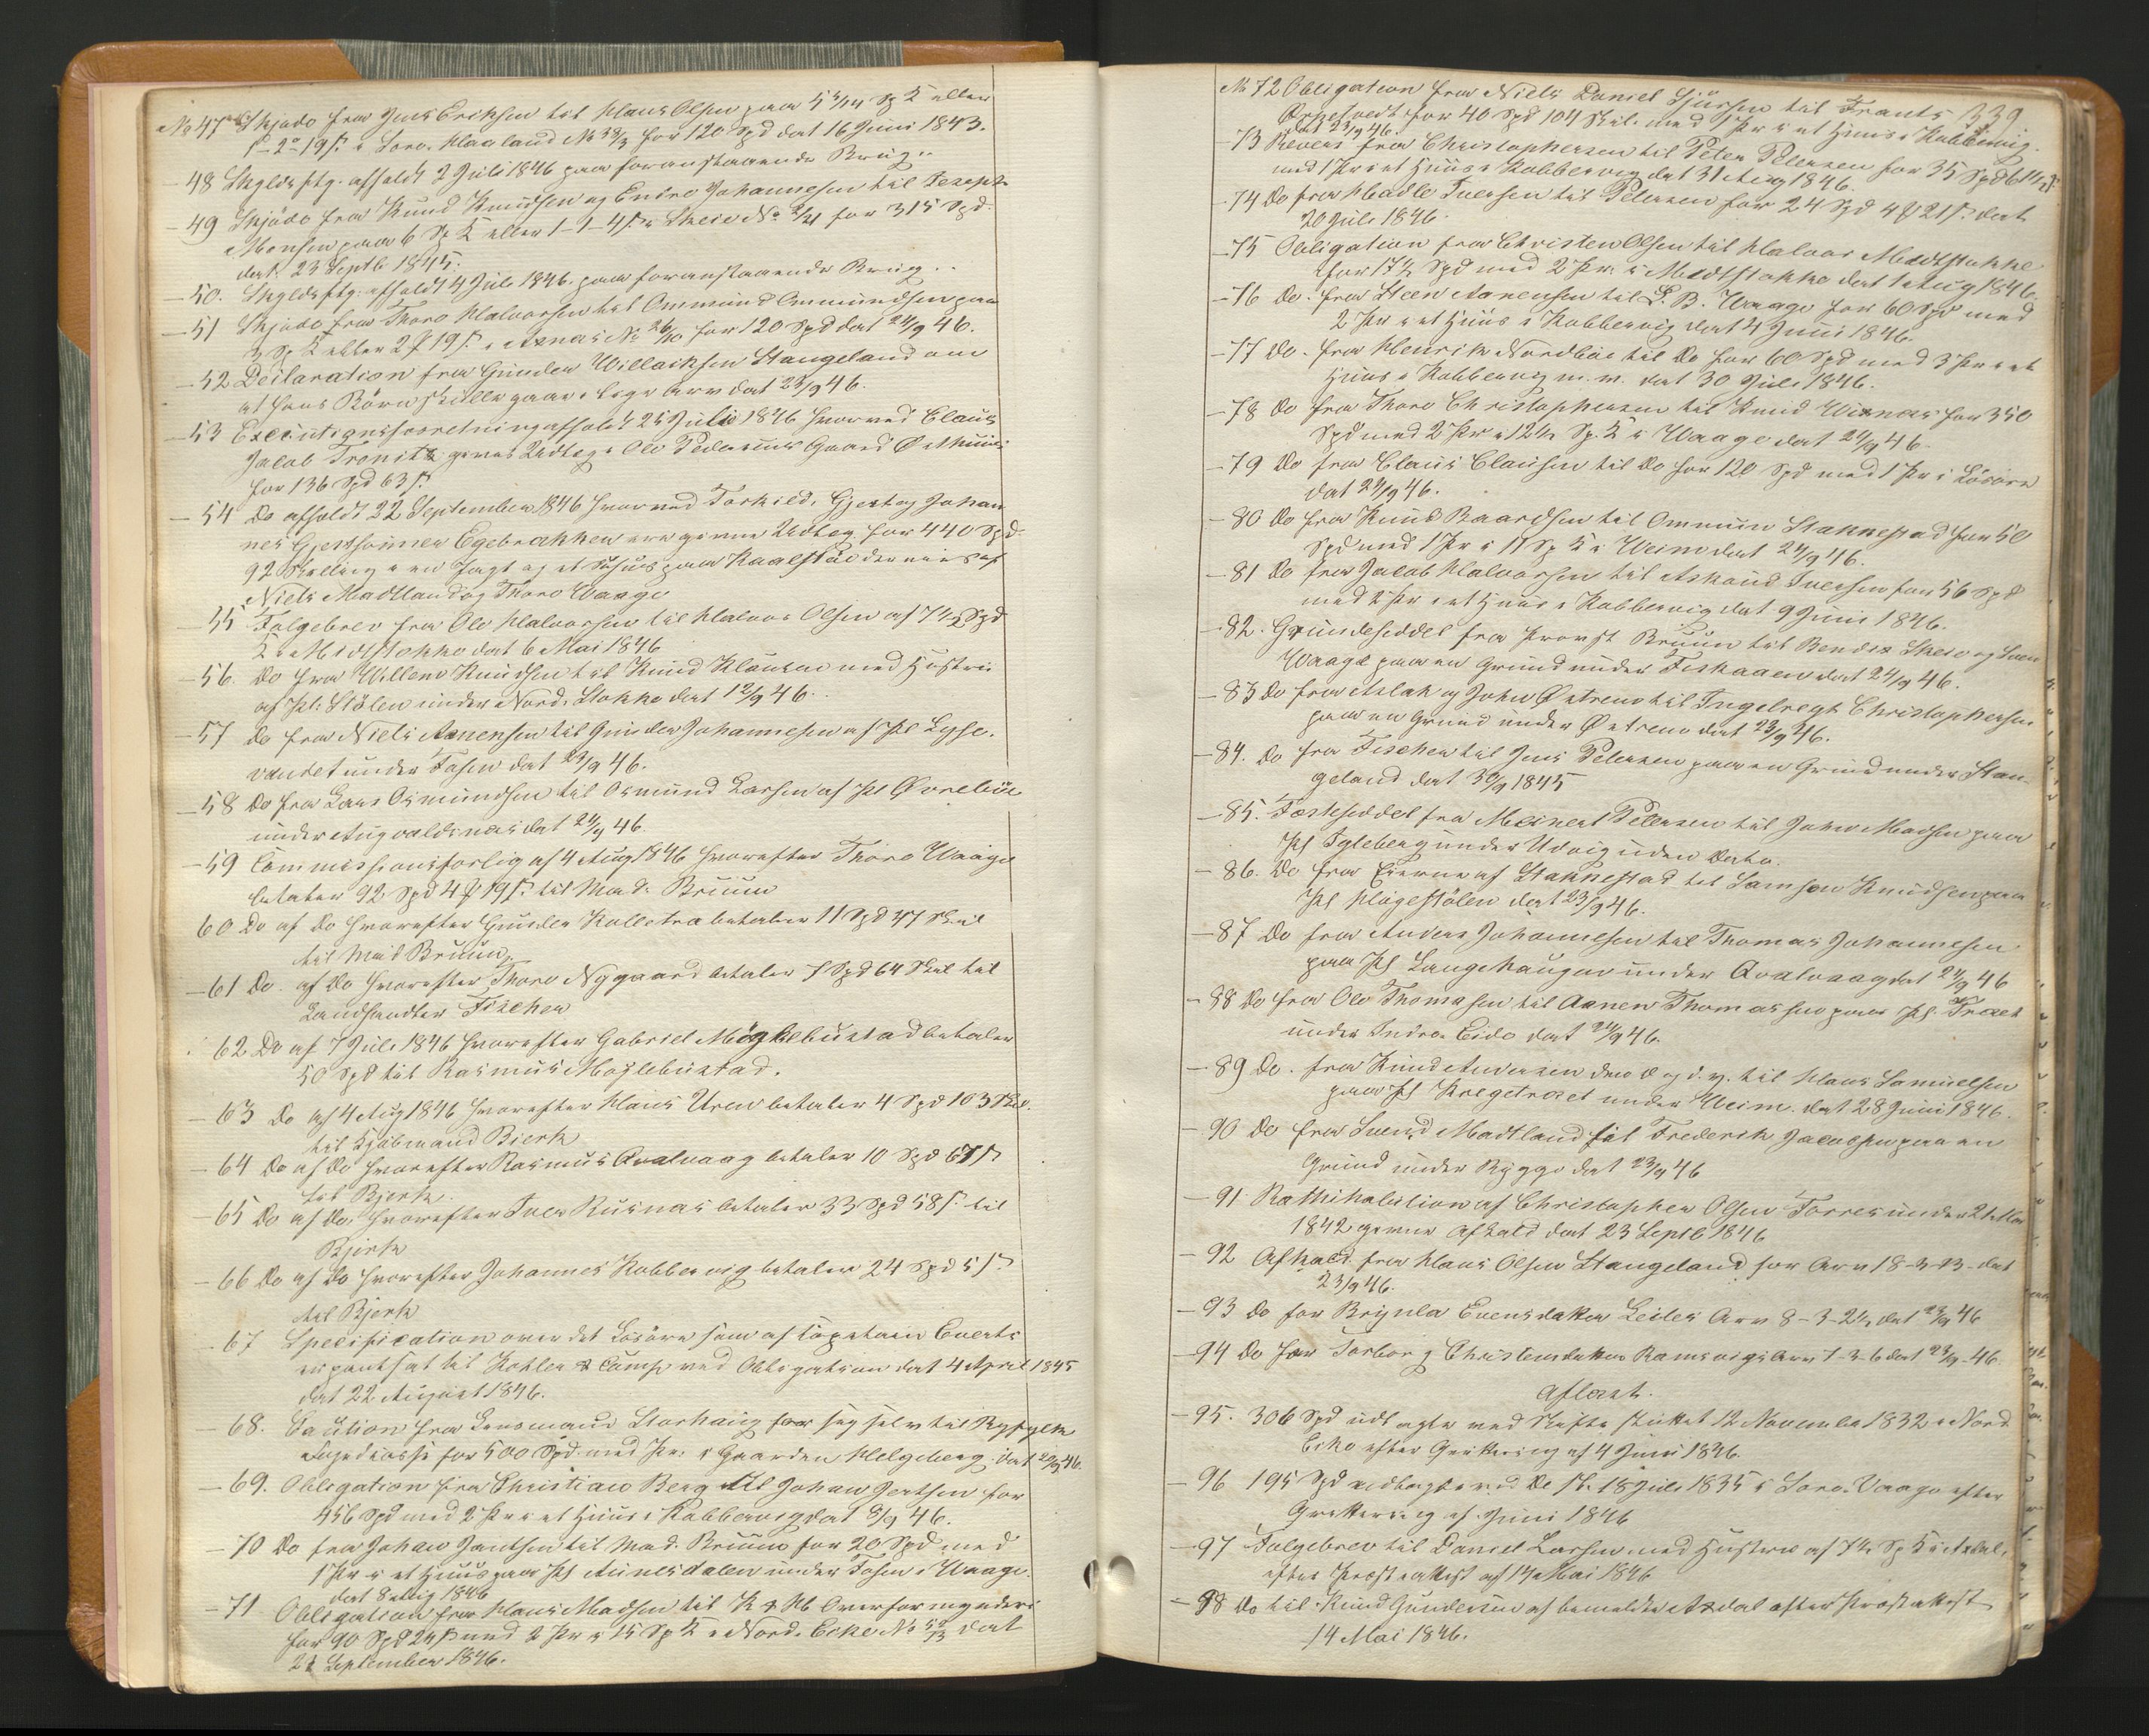 No 47 Skjøde fra Jens Eriksen til Hans Olsen paa 5 Sp K eller
1-2-19 ß i Søre Haaland No 33/3 for 120 Spd dat 16 Juni 1843.
- 48 Skylds ftg. afholdt 2 Juli 1846 paa foranstaaende Brug..
- 49 Skjøde fra Knud Knudsen og Endre Johannesen til Joseph
Monsen paa 6 Sp K eller 1-1-4 ß i Skeie No for 315 Spd
dat. 23 Septb 1845.
- 50. Skylds ftg: afholdt 4 Juli 1846. paa foranstaaende Brug..
- 51 Skjøde fra Thore Halvorsen til Ommund Ommundsen paa
3 Sp K eller 2 ₰ 19 ß i No 26/10 for 120 Spd dat 24/9 46.
- 52 Declaration fra Gunder Willacksen Stangeland om
at hans Børn skulle gaae i lige Arv dat 23/9 46.
- 53 Executionsforretning afholdt 25 Juli 1846 hvorved Claus
Jacob gives Udlæg i Ole Pedersens Gaard
for 136 Spd 63 ß
- 54 Do afholdt 22 September 1846 hvorved Torkild, Gjert og Johan
nes Gjertsønner Egebrekken ere givne Udlæg for 440 Spd
92 Skilling i en Jagt og et Søhuus paa
Niels Madland og Thore Waage
- 55 Følgebrev fra Ole Halvorsen til Halvor Olsen af 7½ Spd
K i Midstokke dat 6 Mai 1846
- 56. Do fra Willem Knudsen til Knud Klausen med Hustru
af Pl: Stølen under Nord. Stokke dat 12/9 46.
- 57 Do fra Niels Aanensen til Gunder Johannesen af Pl Lyse.
vandet under Tosen dat 23/9 46.
- 58 Do fra Lars Osmundsen til Osmund Larsen af Pl Øvrebøe
under Augvaldsnæs dat 24/9 46.
- 59 Commissionsforlig af 4 Aug 1846 hvorefter Thore Waage
betaler 92 Spd 4 ₰ 19 ß. til Mad: Bruun
60 Do af Do hvorefter Gunder Kolletra betaler 11 Spd 47 Skil
til Mad Bruun
- 61 Do. af Do hvorefter Thore Nygaard betaler 7 Spd 64 Skil til
Landhandler Fischer
62 Do af 7 Juli 1846 hvorefter Gabriel Møglebustad betaler
50 Spd til Rasmus Møglebustad.
- 63 Do af 4 Aug 1846 hvorefter Hans Uren betaler 4 Spd 103 Skil.
til Kjøbmand Bjerk
- 64 Do af Do hvorefter Rasmus Qvalvaag betaler 10 Spd 67 ß
til Bjerk.
- 65 Do af Do hvorefter Iver Rusnæs betaler 33 Spd 58 ß til
Bjerk
- 66 Do af Do hvorefter Johannes Kobbervig betaler 24 Spd 5 ß
til Bjerk
- 67 Specification over det Løsøre som af Capitain Everts
er pantsat til Køhler & Comp ved Obligation dat 4 April 1845
dat 22 August 1846.
- 68. Caution fra Lensmand Storhaug for sig selv til Ryfylke
Fogedcasse for 500 Spd. med Pr: i Gaarden Helgeberg dat 46.
- 69. Obligation fra Christian Berg til Johan Jertsen for
456 Spd med 2 Pr i et Huus i Kobbervig dat 8/9 46.
- 70 Do fra Johan Jantsen til Mad. Bruun for 20 Spd med
1 Pr i et Huus paa Pl Aunesdalen under Tosen i Waage.
dat 8 Aug 1846
- 71 Obligation fra Hans Madsen til Overformynderi
for 90 Spd 24 ß med 2 Pr i 15 Sp K i Nord. Eike No dat
21 September 1846.
339
No 72 Obligation fra Niels Daniel Sjursen til Frants
for 40 Spd 104 Skil. med 1 Pr i et Huus i Kobbervig.
dat 23/9 46.
- 73 Revers fra Christophersen til Peter Petersen for 35 Spd
med 1 Pr i et Huus i Kobbervig dat 31 Aug 1846.
- 74 Do fra Madle Iversen til Petersen for 24 Spd 4 ₰ 21 ß. dat
20 Juli 1846.
- 75 Obligation fra Christen Olsen til Halvor Medstokke
for 17½ Spd med 2 Pr. i Medstokke dat 1 Aug 1846.
- 76 Do. fra Steen Aanensen til L. B. Waage for 60 Spd med
2 Pr i et Huus i Kobbervig dat 4 Juni 1846.
- 77 Do. fra Henrik Nordbøe til Do for 60 Spd med 3 Pr i et
Huus i Kobbervig m. v. dat 30 Juli 1846.
- 78 Do fra Thore Christophersen til Knud Wisnæs for 350
Spd med 2 Pr i 12½ Sp. K i Waage dat 24/9 46.
- 79 Do fra Claus Clausen til Do for 120 Spd med 1 Pr i Løsøre
dat 24/9 46.
- 80 Do fra Knud Baardsen til Ommun Stakkestad for 50
Spd med 1 Pr i 11 Sp K i Weim dat 24/9 46.
- 81 Do fra Jacob Halvorsen til Askoud Iversen for 56 Spd
med 2 Pr i et Huus i Kobbervig dat 9 Juni 1846.
- 82. Grundeseddel fra Provst Bruun til Bendix Skeie og Sven
Waage paa en Grund under Fiskaaen dat 24/9 46.
- 83 Do fra Aslak og John Østrem til Ingebregt Christophersen
paa en Grund under Østrem dat 23/9 46.
- 84. Do fra Fischer til Jens Petersen paa en Grund under Stan-
geland dat 30/9 1845
- 85. Fæsteseddel fra Meinert Petersen til John Madsen paa
Pl Igleberg under Udvig uden Dato.
- 86. Do fra Eierne af Stakkestad til Samson Knudsen paa
Pl Høgestølen dat 23/9 46.
- 87 Do fra Anders Johannesen til Thomas Johannesen
paa Pl Langehaugen under Qvalvaag dat 24/9 46
- 88 Do fra Ole Thomasen til Aanen Thomassen paa Pl Træet
under Indre Eide dat 24/9 46.
- 89 Do. fra Knud Andersen den æ og d. y. til Hans Samuelsen
paa Pl Kregetræet under Weim. dat 28 Juni 1846.
- 90 Do fra Svend Madtland til Frederik Jacobsen paa en
Grund under Rygge dat 23/9 46
- 91 Rathihabition af Christopher Olsen Førres under
1842 givne Afkald dat 23 Septb 1846
- 92 Afkald fra Hans Olsen Stangeland for Arv 18-3-13- dat
23/9 46.
- 93 Do for Brynla Evensdatter Leiles Arv 8-3-2½ dat 23/9 46
- 94 Do for Torborg Christensdatter Ramsvigs Arv 1-3-6 dat 23/9 46.
Aflæst.
- 95. 306 Spd udlagte ved Skifte sluttet 12 November 1832 i Nord
Eike efter Qvittering af 4 Juni 1846.
- 96 195 Spd udlagte ved Do Sl. 18 Juli 1835 i Søre. Vaage efter
Qvittering af Juni 1846
- 97 Følgebrev til Daniel Larsen med Hustru af 7½ Sp K i Aadal.
efter Præsteattest af 14 Mai 1846
- 98 Do til Knud Gundersen af bemeldte Aadal efter Præsteattest
14 Mai 1846.